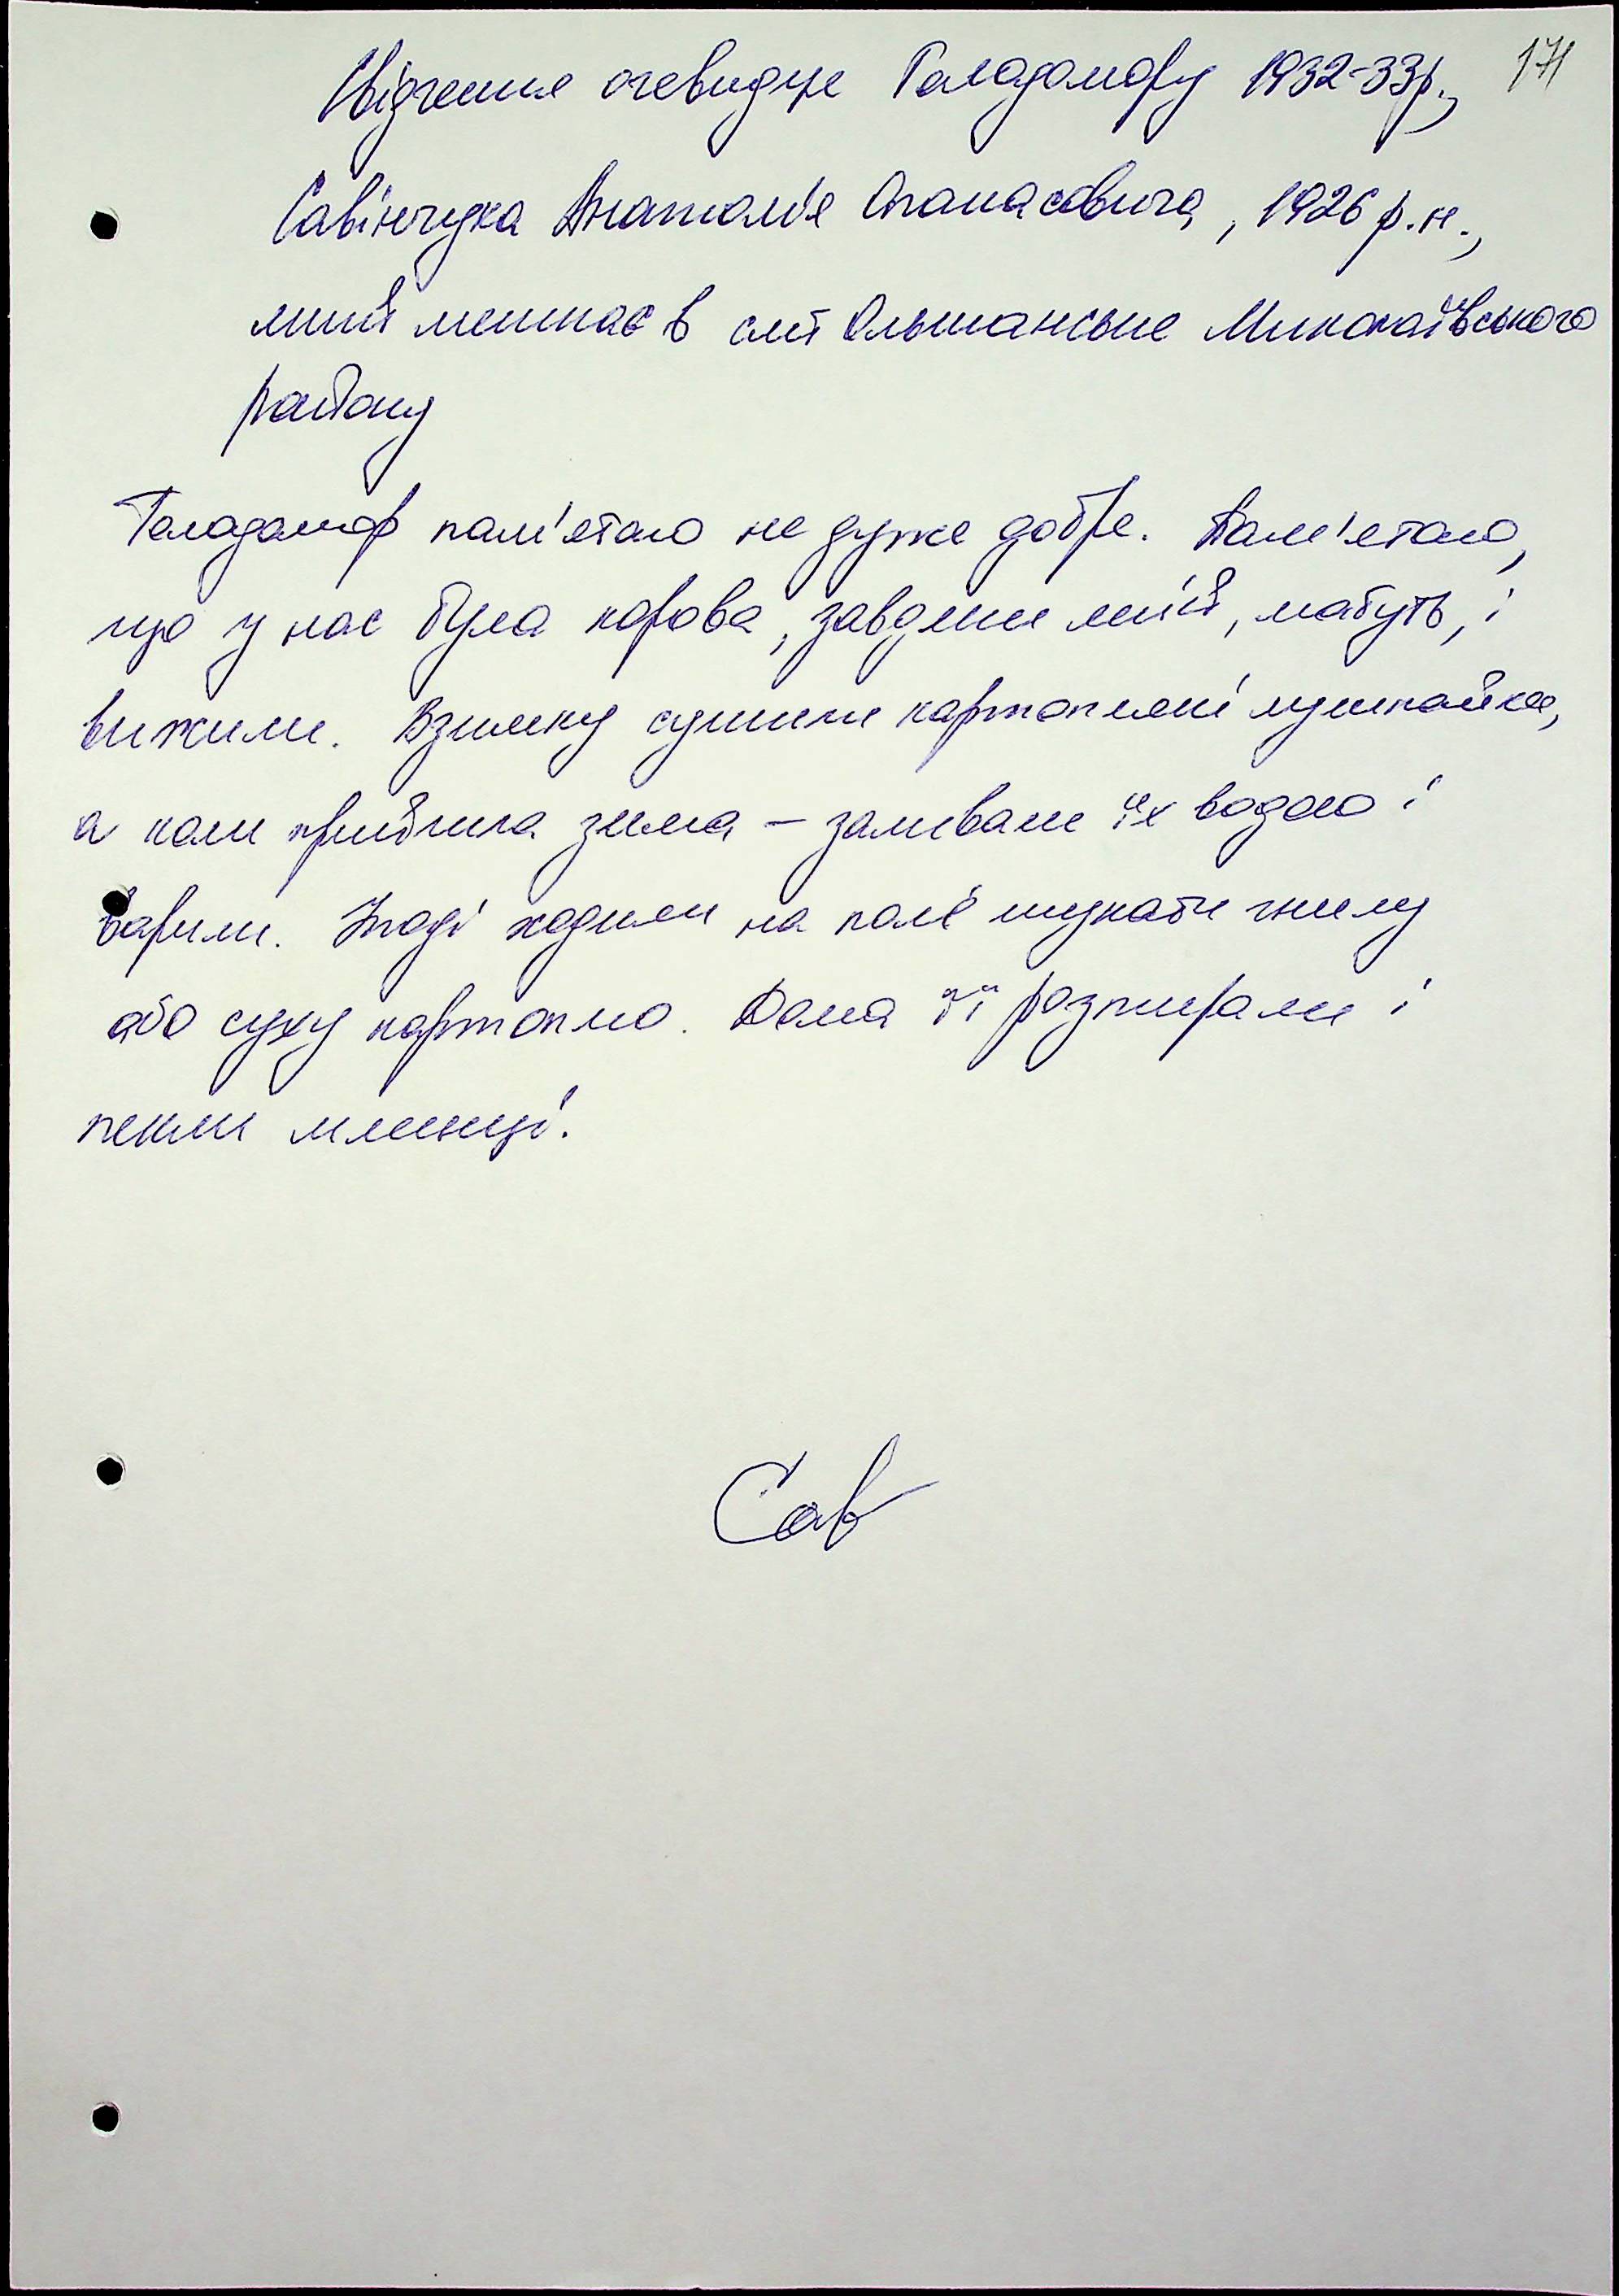 171
Свідчення очевидця Голодомору 1932-33р.,
Савінчука Анатолія Опанасовича, 1926 р.н.,
який мешкає в смт Ольшанське Миколаївського
району
Голодомор пам'ятаю не дуже добре. Пам'ятаю,
що у нас була корова, завдяки якій, мабуть, і
вижили. Взимку сушили картопляні лушпайки,
а коли прийшла зима – заливали їх водою і
варили. Іноді ходили на поле шукати гнилу
або суху картоплю. Дома її розтирали і
пекли млинці.
Сав